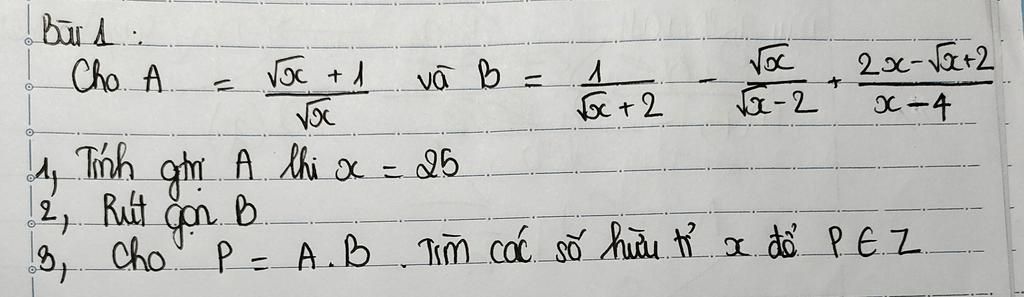 Bài 1 :
Cho A = (√x + 1)/√x và B = 1/(√x + 2) - √x/(√x - 2) + (2x - √x + 2)/(x - 4)
1, Tính gtrị A khi x = 25
2, Rút gọn B
3, Cho P = A.B. Tìm các số hữu tỉ x để P ∈ Z